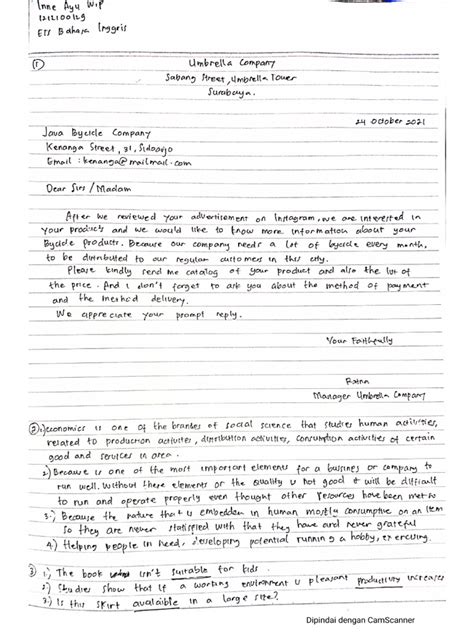 Inne Ayu W.P
1212100129
ETS Bahasa Inggris
①
Umbrella Company
Sabang Street, Umbrella Tower
Surabaya.
24 October 2021
Java Bycicle Company
Kenanga Street, 31, Sidoarjo
Email : kenanga@mailmail.com
Dear Sirs / Madam
After we reviewed your advertisement on Instagram, we are interested in
your products and we would like to know more information about your
Bycicle products. Because our company needs a lot of bycicle every month,
to be distributed to our regular customers in this city.
Please kindly send me catalog of your product and also the lot of
the price. And I don't forget to ask you about the method of payment
and the method delivery.
We appreciate your prompt reply.
Your Faithfully
Ratna
Manager Umbrella Company
② 1.) economics is one of the branches of social science that studies human activities,
related to production activities, distribution activities, consumption activities of certain
good and services in area.
2.) Because is one of the most important elements for a business or company to
run well. Without these elements or the quality is not good it will be difficult
to run and operate properly even thought other resources have been met
3.) Because the nature that is embedden in human mostly consumptive on an item
so they are never statisfied with that they have and never grateful
4.) Helping people in need, developing potential running a hobby, exercising.
③ 1.) The book isn't suitable for kids.
2.) Studies show that if a working environment is pleasant productivity increases
3.) Is this skirt avalaible in a large size?
Dipindai dengan CamScanner